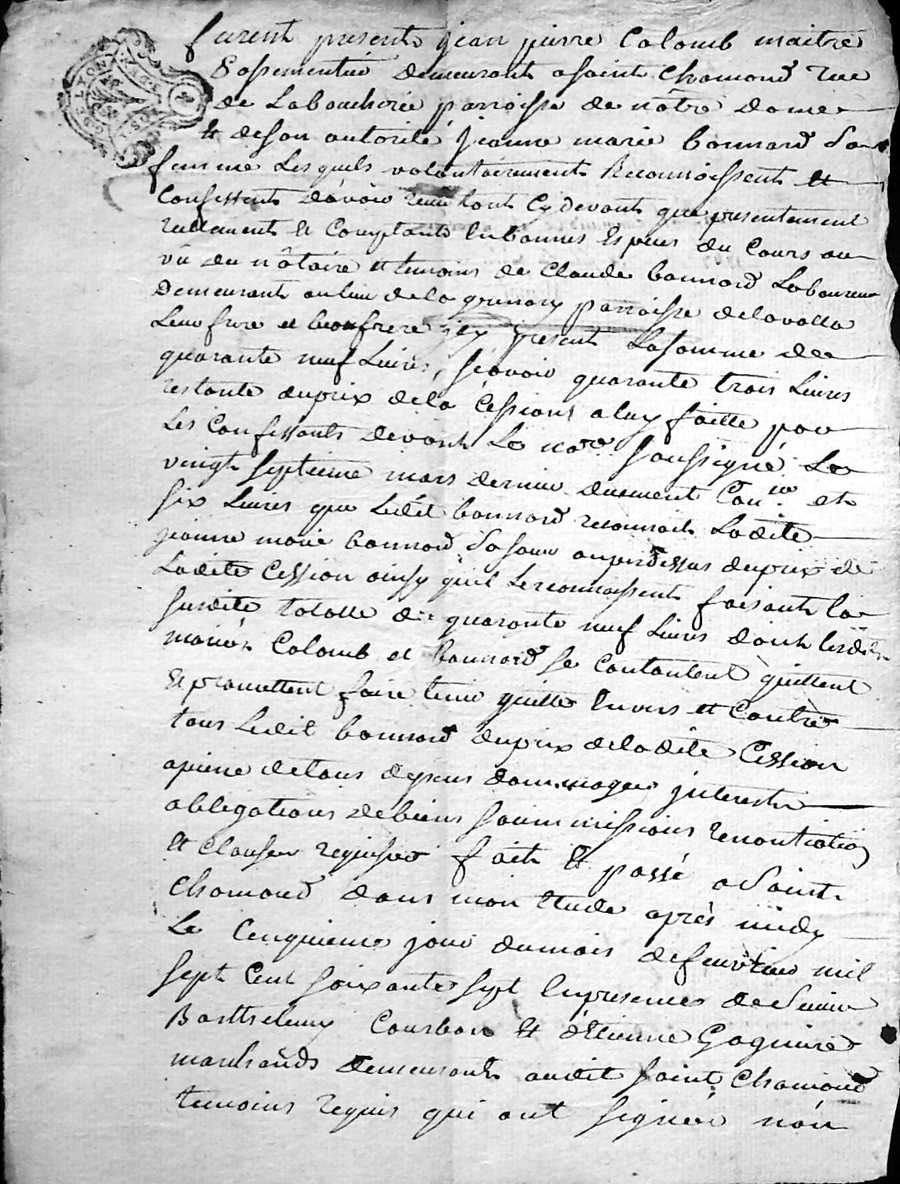 GEN. DE LYON
furent presents jean pierre Colomb maitre
passementier demeurant a saint chamond rue
de Laboucherie parroisse de nôtre dame
et de son autorité jeanne marie bonnard sa
femme Lesquels volontairement Reconnoissent et
Confessent d'avoir reçu tant Cy devant que presentement
réellement et Comptant En bonnes Especes du Cours au
vû du nôtaire et temoins de Claude bonnard Laboureur
Demeurant au lieu de la parroisse de lavalla
Leur frere et beaufrere icy present La somme de
quarante neuf Livres, sçavoir quarante trois Livres
restante du prix de la Cession a luy faitte par
Les Confessants devant Le no.re soussigné Le
vingt septieme mars dernier duement Con.lé et
six Livres que Ledit bonnard reconnoit Ladite
jeanne marie bonnard sa soeur au perdessus du prix de
Ladite Cession ainsy qu'il Le reconnoissent faisant la
susdite totalle de quarante neuf Livres dont lesdits
mariés Colomb et Bonnard se Contentent quittent
Et promettent faire tenir quitte Envers et Contre
tous Ledit bonnard du prix de ladite Cession
a peine de tous depens dommages interests
obligations de biens soummissions renontiation
et clauses requises fait et passé a Saint
Chamond dans mon Etude après midy
Le Cinquieme jour du mois de fevrier mil
sept Cent soixante sept En presence de Sieur
Barthelemy Courbon et d'Etienne Gaguiere
marchands demeurants audit saint Chamond
temoins requis qui ont signés nón